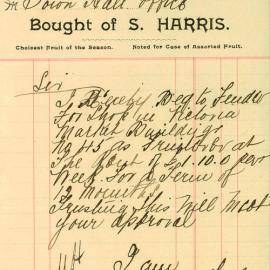 m Town Hall Office
Bought of S. HARRIS.
Choicest Fruit of the Season. Noted for Case of Assorted Fruit.
Sir
I Hereby Beg to Tender
For Shop in Victoria
Market Buildings
No 415 as Fruiterer at
The Rent of £1.10.0 per
Week For a Term of
12 Months
Trusting this Will Meet
your approval
I am